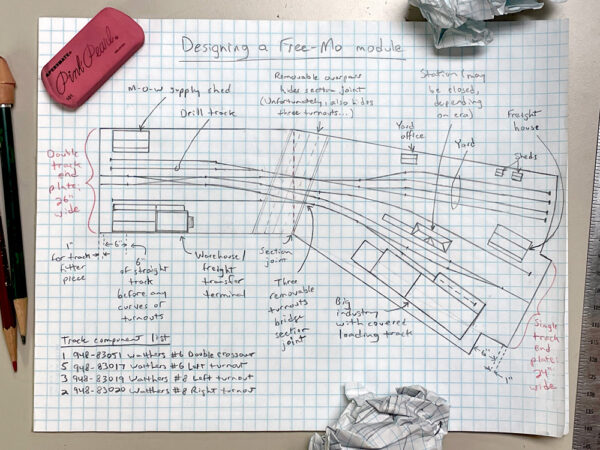 PAPERMATE®
Pink Pearl®
101
Designing a Free-Mo module
M-O-W supply shed
Drill track
Removable overpass
hides section joint
(Unfortunately, also hides
three turnouts...)
Station (may
be closed,
depending
on era)
Freight
house
Yard
office
Yard
Sheds
Double
track
end
plate:
26"
wide
1"
for track
fitter
piece
6"
6"
of straight
track
before any
curves or
turnouts
Warehouse/
freight
transfer
terminal
Section
joint
Three
removable
turnouts
bridge
section
joint
Big
industry
with covered
loading track
6"
1"
Single
track
end
plate:
24"
wide
Track component list
1 948-83051 Walthers #6 Double crossover
5 948-83017 Walthers #6 Left turnout
3 948-83019 Walthers #8 Left turnout
2 948-83020 Walthers #8 Right turnout